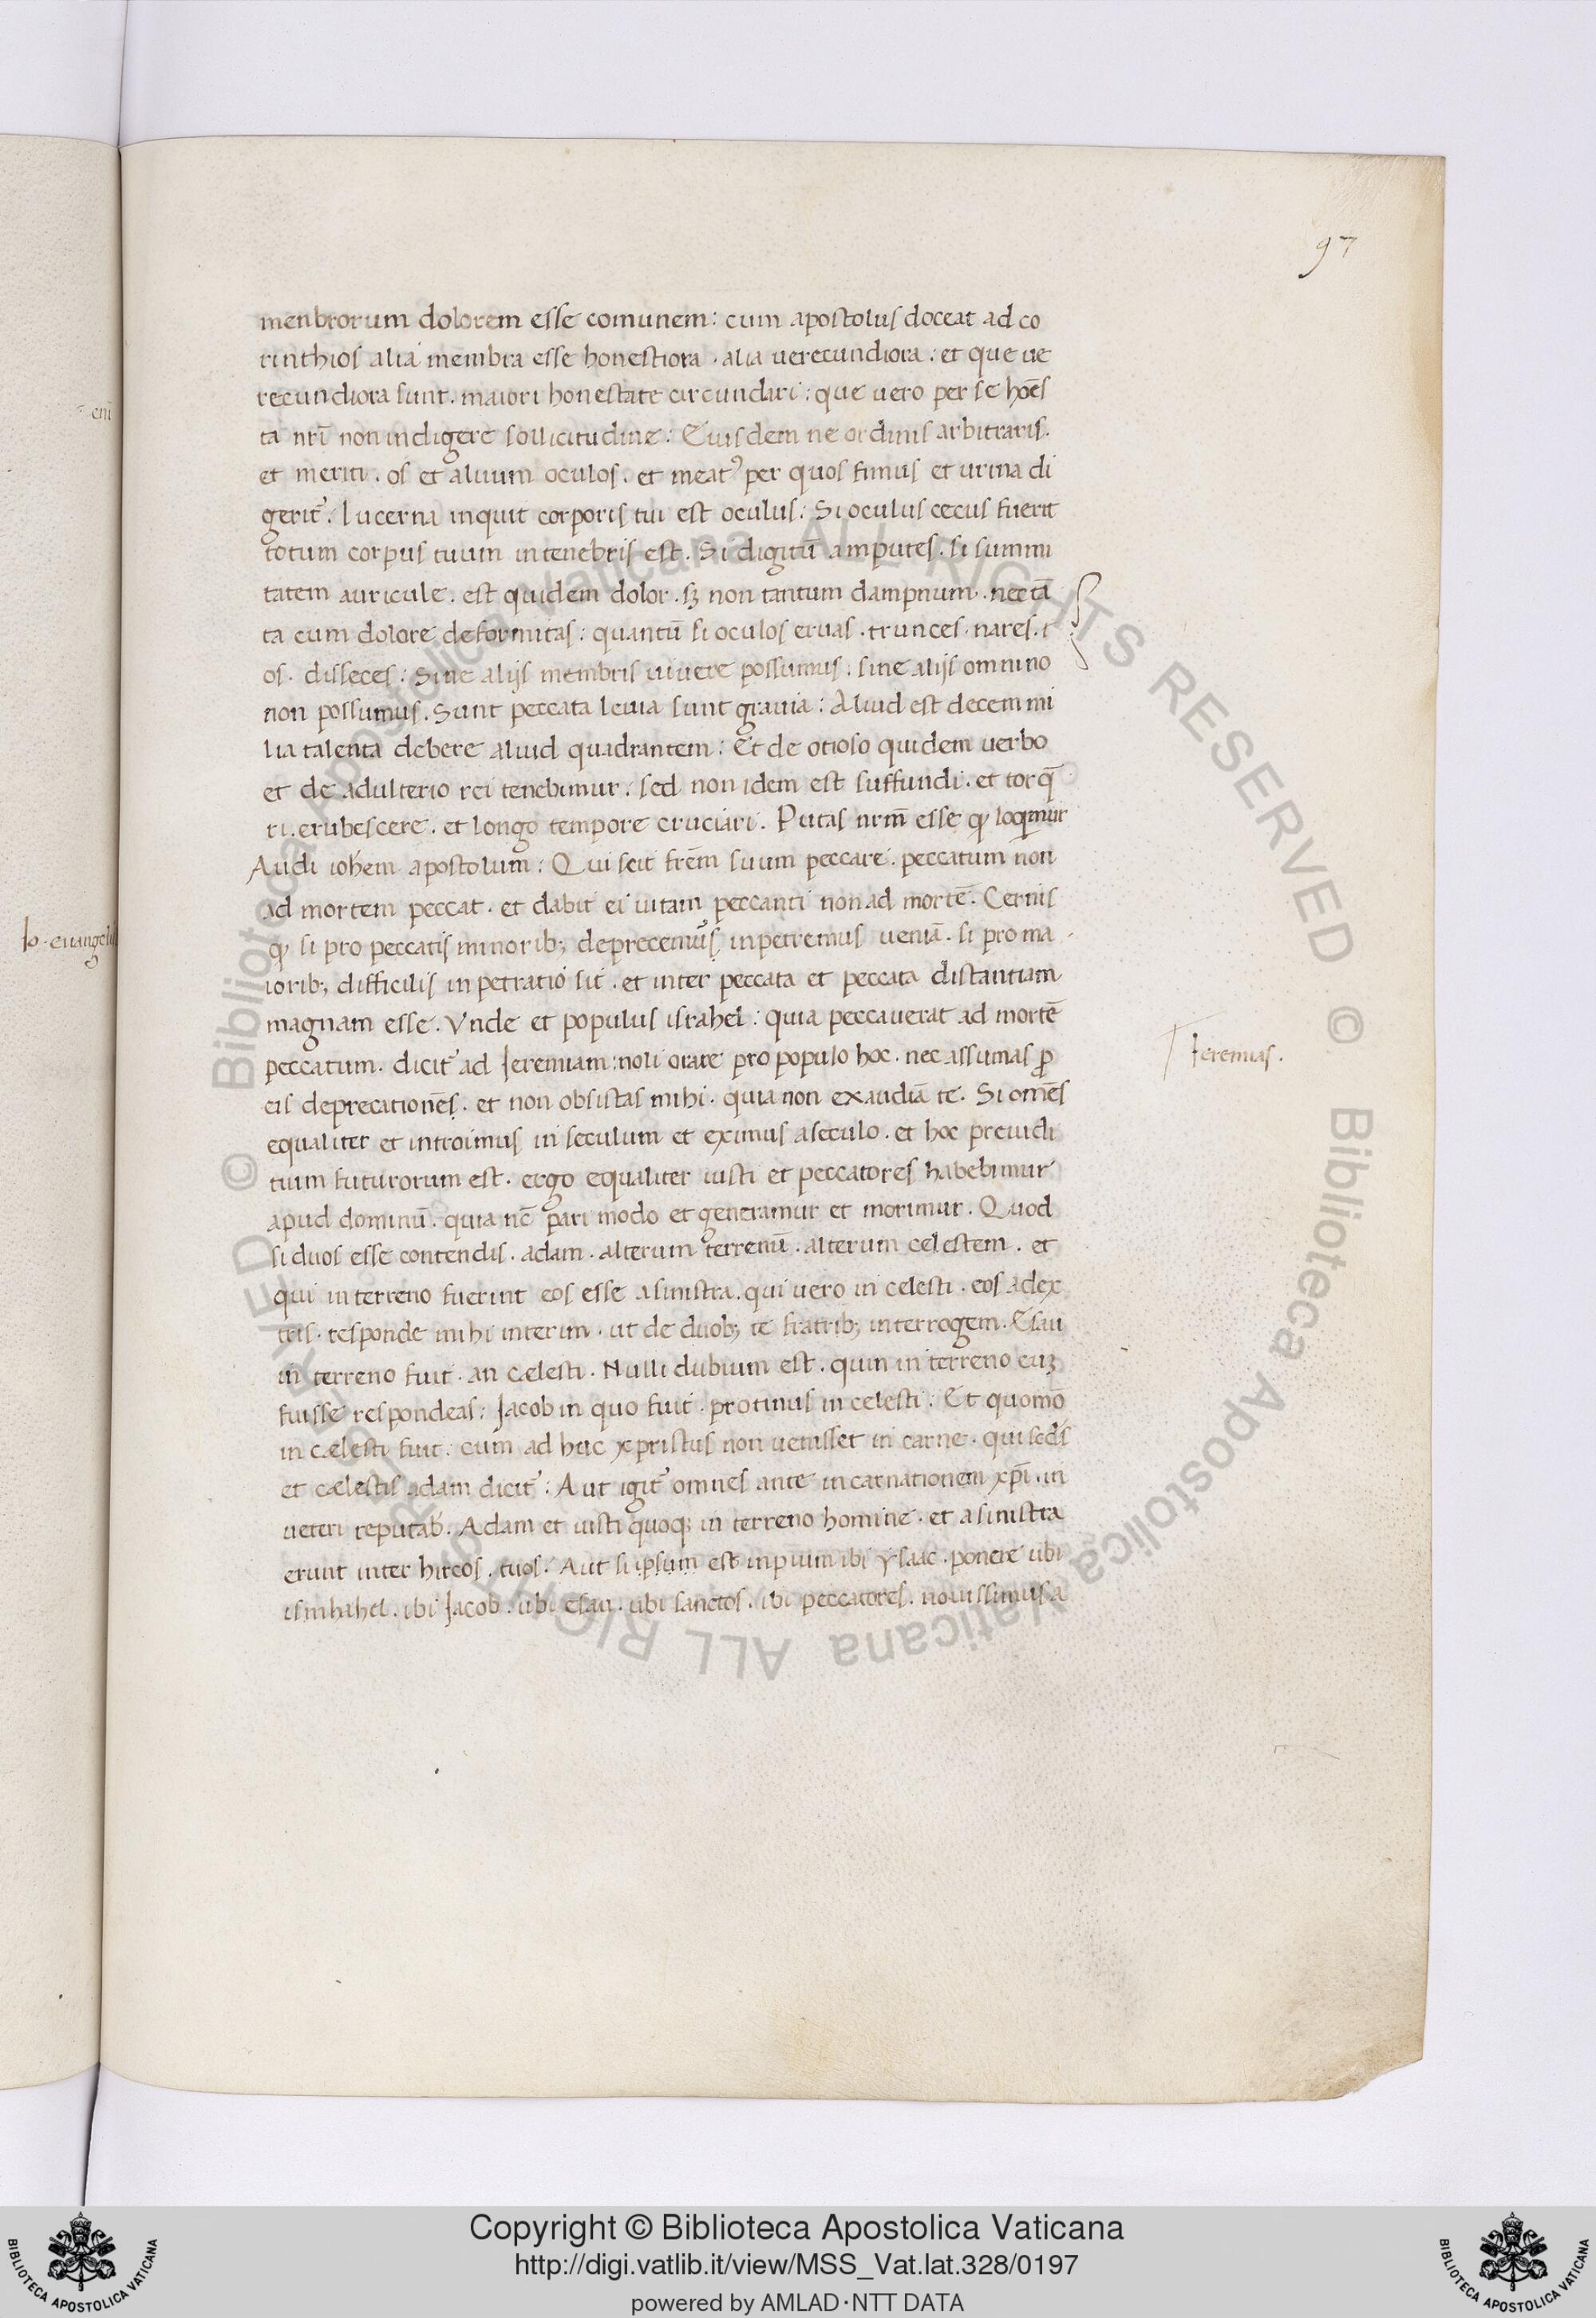 97
menbrorum dolorem esse comunem: cum apostolus doceat ad co
rinthios alia membra esse honestiora. alia uerecundiora: et que ue
recundiora sunt. maiori honestate circundari: que uero per se hōes
ta nrī non indigere sollicitudine: Eiusdem ne ordinis arbitraris.
et meriti. os et aluum oculos. et meatꝰ per quos fimus et urina di
gerit᷑. Lucerna inquit corporis tui est oculus: Si oculus cecus fuerit
totum corpus tuum in tenebris est. Si digitū amputes. si summi
tatem auricule. est quidem dolor. sꝫ non tantum dampnum. nec tā
ta cum dolore deformitas: quantū si oculos eruas. trunces. nares.
os. disseces: Sine alijs membris uiuere possumus. sine alijs omnino
non possumus. Sunt peccata leuia sunt grauia: Aliud est decem mi
lia talenta debere aliud quadrantem: Et de otioso quidem uerbo
et de adulterio rei tenebimur. sed non idem est suffundi. et torq̄
ri. erubescere. et longo tempore cruciari. Putas nrm̄ esse qꝫ loqͥmur
Audi iohēm apostolum: Qui scit frēm suum peccare. peccatum non
ad mortem peccat. et dabit ei uitam peccanti non ad mortē. Cernis
qꝫ si pro peccatis minoribꝫ deprecemus inpetremus ueniā. si pro ma
ioribꝫ difficilis inpetratio sit. et inter peccata et peccata distantiam
magnam esse. Vnde et populus israhel: quia peccauerat ad mortē
peccatum. dicit᷑ ad Jeremiam: noli orare pro populo hoc. nec assumas ꝓ
eis deprecationēs. et non obsistas mihi. quia non exaudiā te. Si omēs
equaliter et introimus in seculum et eximus a seculo. et hoc preiudi
tium futurorum est. ergo equaliter iusti et peccatores habebimur
apud dominū. quia nc̄ pari modo et generamur et morimur. Quod
si duos esse contendis. adam. alterum terrenū. alterum celestem. et
qui in terreno fuerint eos esse a sinistra. qui uero in celesti. eos a dex
tris. responde mihi interim. ut de duobꝫ te fratribꝫ interrogem. Esau
in terreno fuit. an cælesti. Nulli dubium est. quin in terreno euꝫ
fuisse respondeas: Jacob in quo fuit. protinus in celesti: Et quomō
in cælesti fuit. cum ad huc xpristus non uenisset in carne. qui scđs
et cælestis adam dicit᷑: Aut igit᷑ omnes ante incarnationem xpī. in
ueteri reputab̄. Adam et iusti quoqꝫ in terreno homine. et a sinistra
erunt inter hircos. tuos. Aut si ipsum est inpium ibi ysaac. ponere ubi
ismhahel. ibi Jacob. ubi esau. ubi sanctos. ibi peccatores. nouissimus a
Jeremias.
Io. euangeli
Copyright © Biblioteca Apostolica Vaticana
http://digi.vatlib.it/view/MSS_Vat.lat.328/0197
powered by AMLAD·NTT DATA
BIBLIOTECA APOSTOLICA VATICANA
BIBLIOTECA APOSTOLICA VATICANA
© Biblioteca Apostolica Vaticana ALL RIGHTS RESERVED © Biblioteca Apostolica Vaticana ALL RIGHTS RESERVED